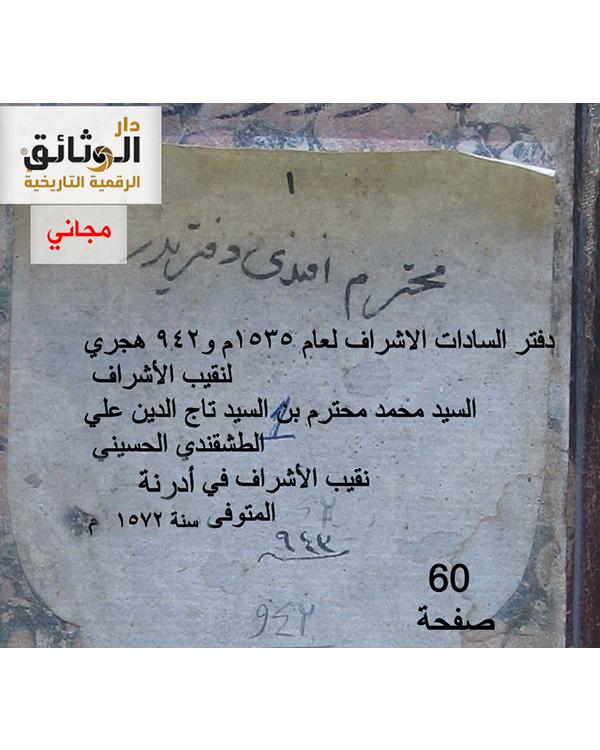 دار
الوثائق
الرقمية التاريخية
مجاني
١
محترم افندی دفتریدر
دفتر السادات الاشراف لعام ١٥٣٥م و٩٤٢ هجري
لنقيب الأشراف
السيد محمد محترم بن السيد تاج الدين علي
الطشقندي الحسيني
نقيب الأشراف في أدرنة
المتوفى سنة ١٥٧٢ م
٩٤٣
٩٤٢
60
صفحة